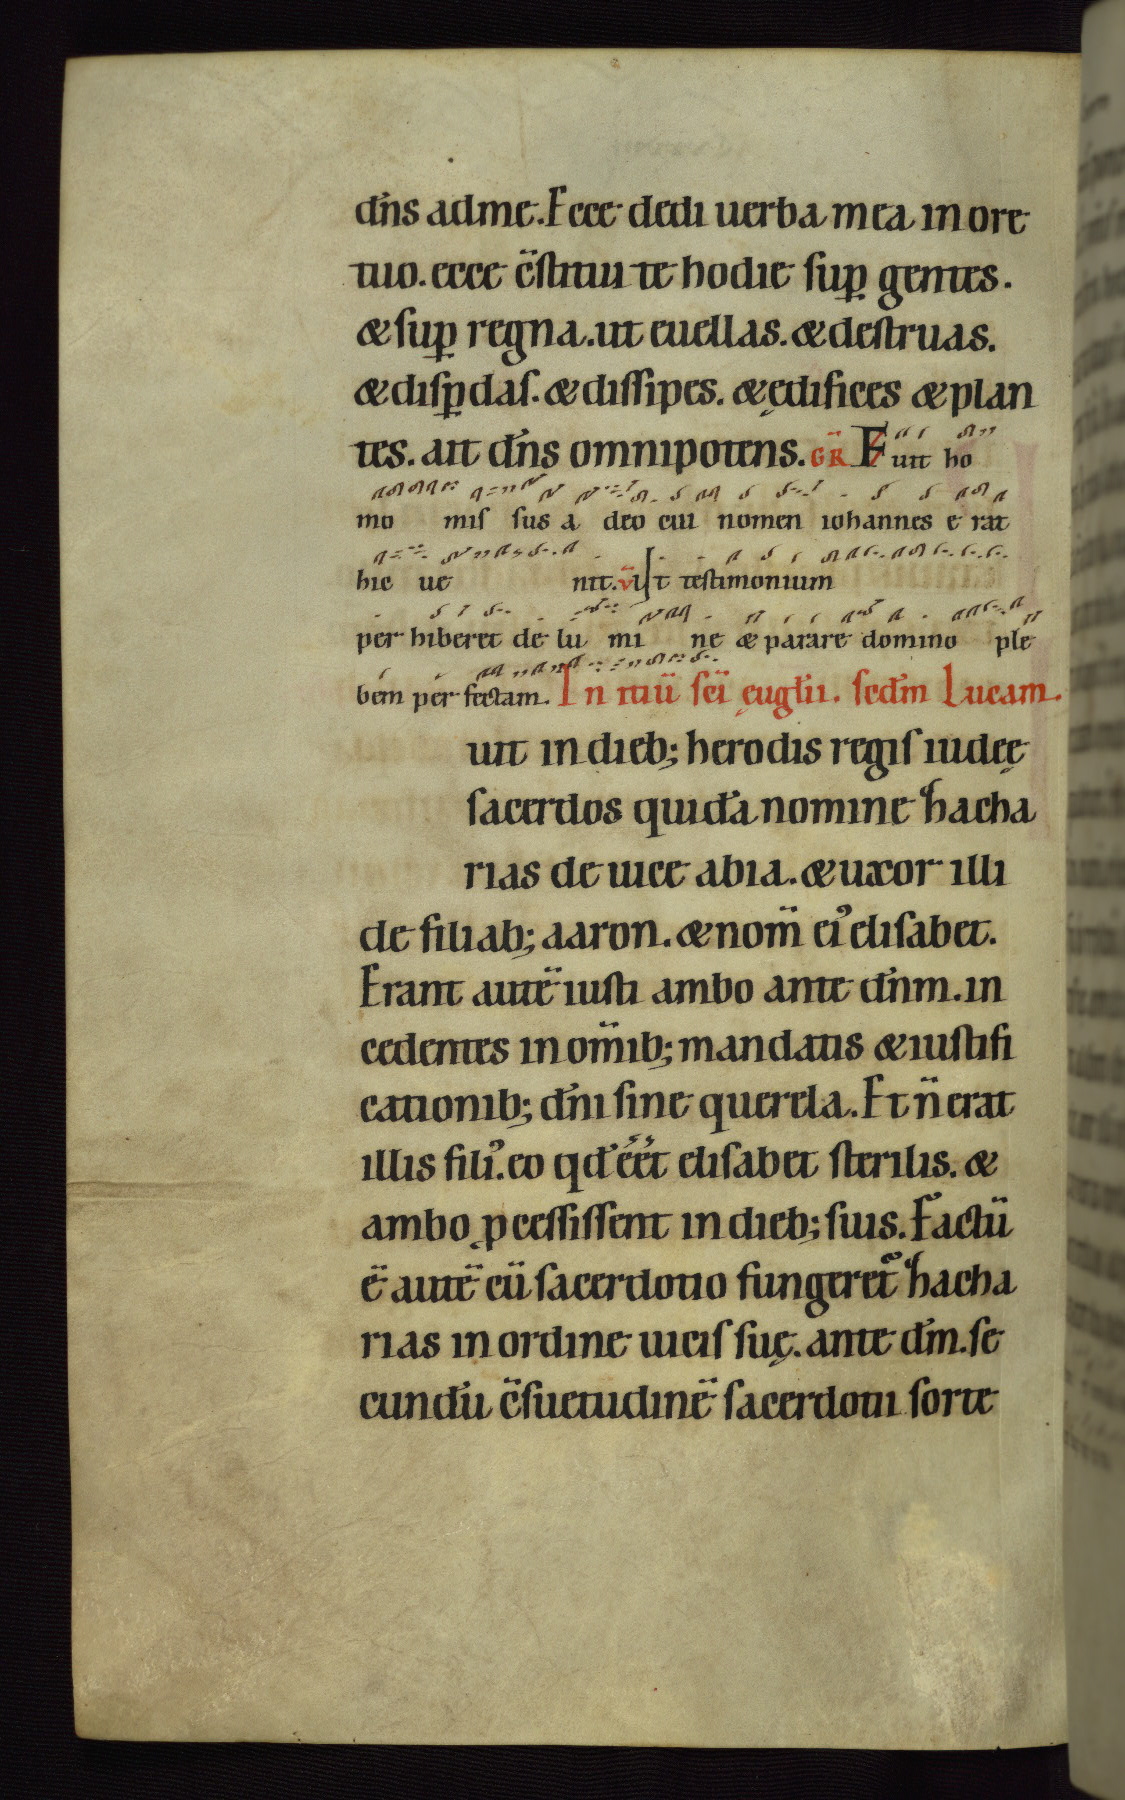 dn̄s adme. Ecce dedi uerba mea in ore
tuo. ecce c̄stitui te hodie sup̲ gentes.
& sup̲ regna. ut euellas. & destruas.
& disp̲das. & dissipes. & ędifices & plan
tes. ait dn̄s omnipotens. GR̄ Fuit ho
mo mis sus a deo cui nomen iohannes e rat
hic ue nit. v̄ Ut testimonium
per hiberet de lu mi ne & parare domino ple
bem per fectam. In nat̄ sc̄i ęuglīi. sedm̄ Lucam.
uit in dieb; herodis regis iudeę
sacerdos quidā nomine zacha
rias de uice abia. & uxor illi
de filiab; aaron. & nom̄ ei᾽ elisabet.
Erant autē iusti ambo ante dn̄m. in
cedentes in om̄ib; mandatis & iustifi
cationib; dn̄i sine querela. Et n̄ erat
illis fili᾽. eo qd̄ e̅e̅t elisabet sterilis. &
ambo p̲cessissent in dieb; suis. Factū
ē autē cū sacerdotio fungeret᾽ zacha
rias in ordine uicis suę. ante dm̄. se
cundū c̄suetudinē sacerdotii sorte